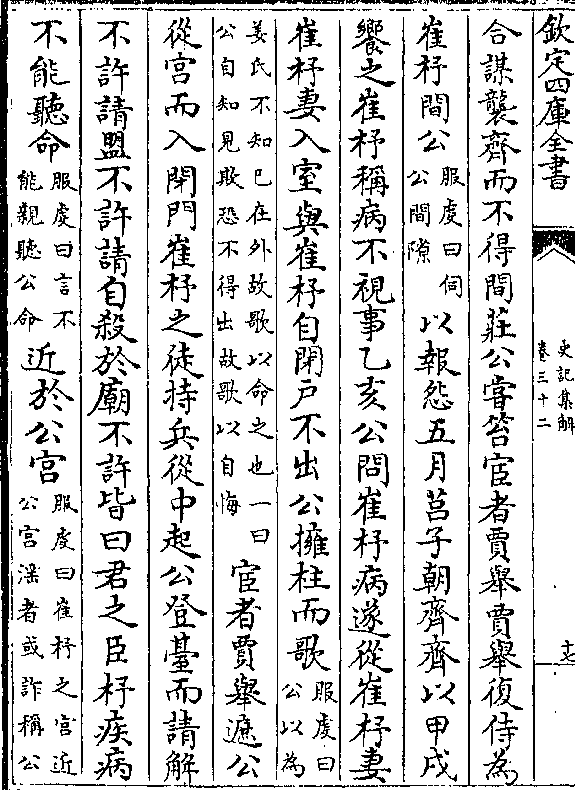 欽定四庫全書
史記集解
卷三十二
十七
合謀襲齊而不得間莊公嘗笞宦者賈舉賈舉復侍為
崔杼間公
服虔曰伺
公間隙
以報怨五月莒子朝齊齊以甲戌
饗之崔杼稱病不視事乙亥公問崔杼病遂從崔杼妻
崔杼妻入室與崔杼自閉戶不出公擁柱而歌
服虔曰
公以為
姜氏不知已在外故歌以命之也一曰
公自知見欺恐不得出故歌以自悔
宦者賈舉遮公
從宮而入閉門崔杼之徒持兵從中起公登臺而請解
不許請盟不許請自殺於廟不許皆曰君之臣杼疾病
不能聽命
服虔曰言不
能親聽公命
近於公宮
服虔曰崔杼之宮近
公宮淫者或詐稱公